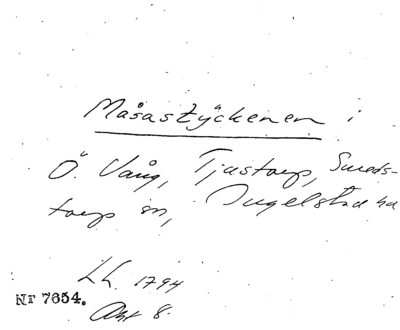 Måsastyckenen i
Ö. Vång, Tjustorp, Smeds-
torp sn, Ingelstad hd
LL. 1794
Akt 8.
Nr 7654.